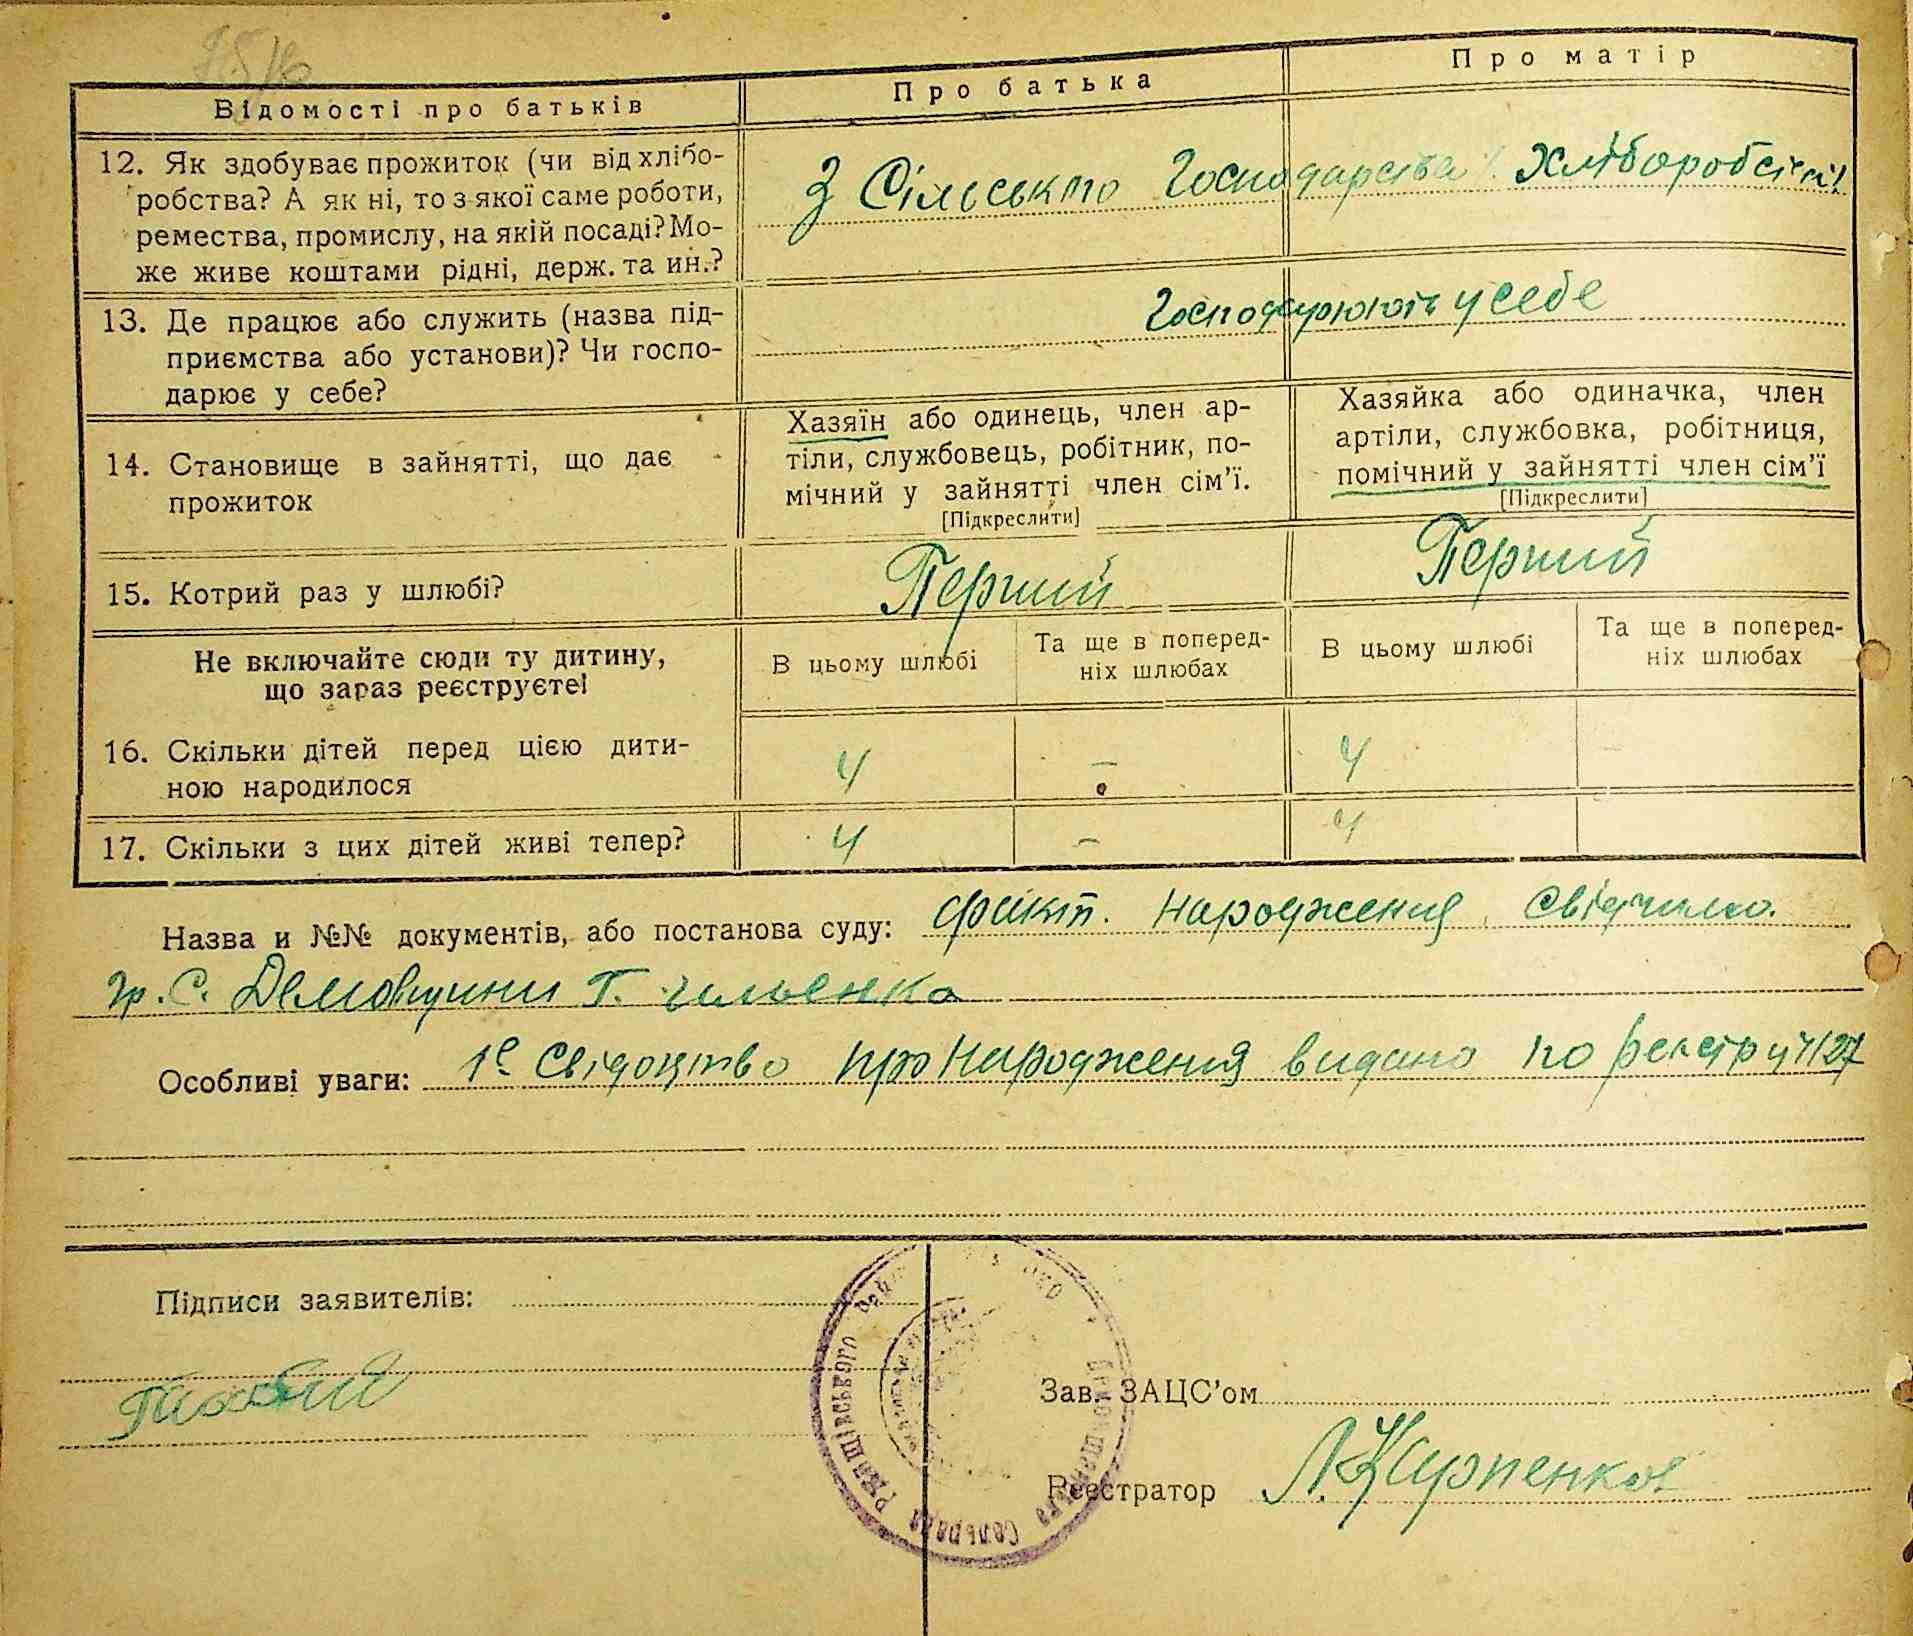 Відомості про батьків
Про батька
Про матір
12. Як здобуває прожиток (чи від хлібо-
робства? А як ні, то з якої саме роботи,
ремества, промислу, на якій посаді? Мо-
же живе коштами рідні, держ. та ин.?
З Сільського Господарства /. Хліборобства /.
13. Де працює або служить (назва під-
приємства або установи)? Чи госпо-
дарює у себе?
Господарюють у себе
14. Становище в зайнятті, що дає
прожиток
Хазяїн або одинець, член ар-
тіли, службовець, робітник, по-
мічний у зайнятті член сім'ї.
[Підкреслити]
Хазяйка або одиначка, член
артіли, службовка, робітниця,
помічний у зайнятті член сім'ї
[Підкреслити]
15. Котрий раз у шлюбі?
Перший
Перший
Не включайте сюди ту дитину,
що зараз реєструєте!
В цьому шлюбі
Та ще в поперед-
ніх шлюбах
В цьому шлюбі
Та ще в поперед-
ніх шлюбах
16. Скільки дітей перед цією дити-
ною народилося
4
–
4
17. Скільки з цих дітей живі тепер?
4
–
4
Назва и №№ документів, або постанова суду: факт. народження свідчило.
гр. С. Демовщини Г. Ільєнко
Особливі уваги: 1е Свідоцтво про народження видано по реєстру 4/27
Підписи заявителів:
Зав. ЗАЦС'ом
Реєстратор Л. Карпенко
Сельрада Ржищівського